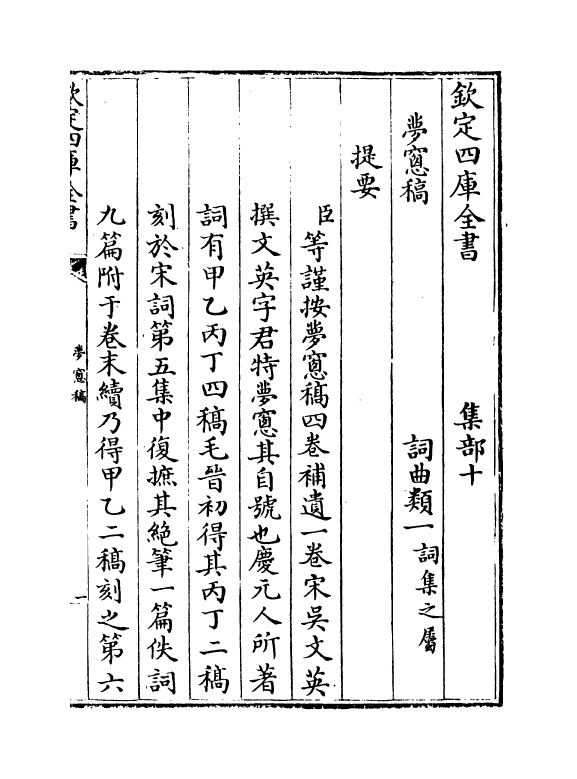 欽定四庫全書　集部十
夢窻稿　詞曲類一詞集之屬
提要
臣等謹按夢窻稿四卷補遺一卷宋吳文英
撰文英字君特夢窻其自號也慶元人所著
詞有甲乙丙丁四稿毛晉初得其丙丁二稿
刻於宋詞第五集中復摭其絶筆一篇佚詞
九篇附于卷末續乃得甲乙二稿刻之第六
欽定四庫全書　夢窻稿　一